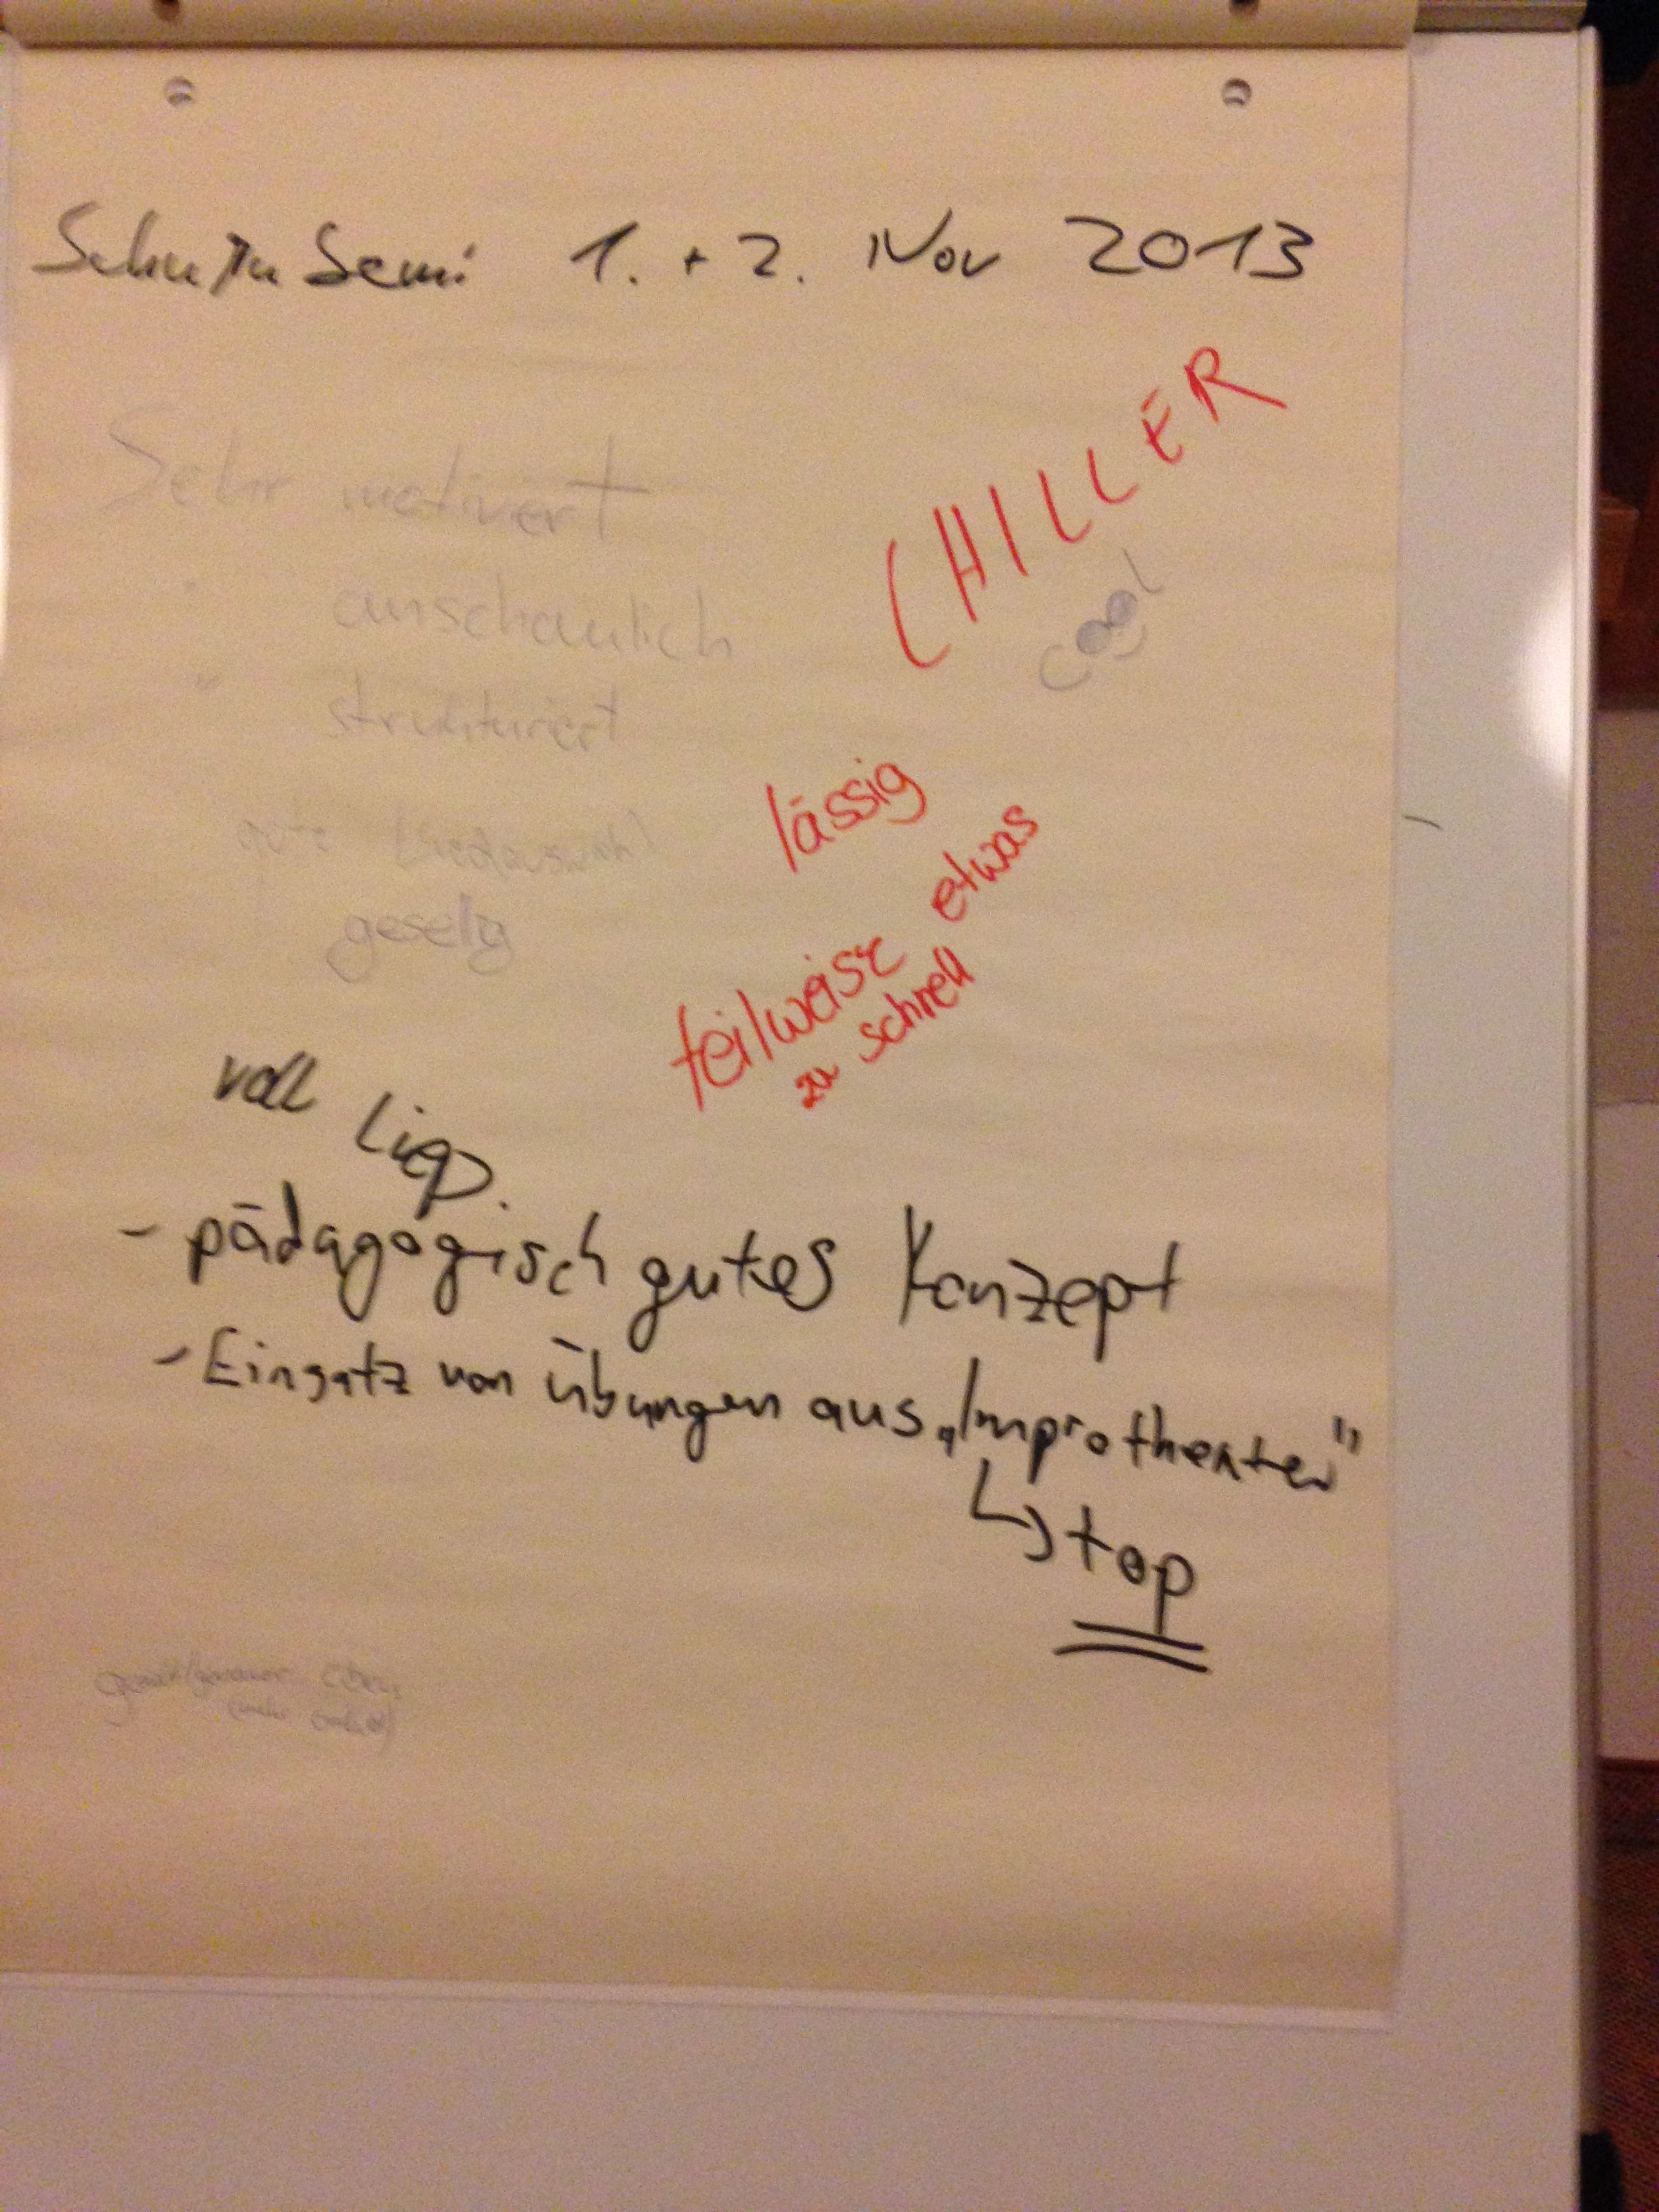 Semi 1. + 2. Nov 2013
CHILLER
Sehr motiviert
cool
" anschaulich
" strukturiert
lässig
gute Liedauswahl
gesellig
teilweise etwas
zu schnell
voll
- pädagogisch gutes Konzept
- Einsatz von Übungen aus „Improtheater"
↳ top